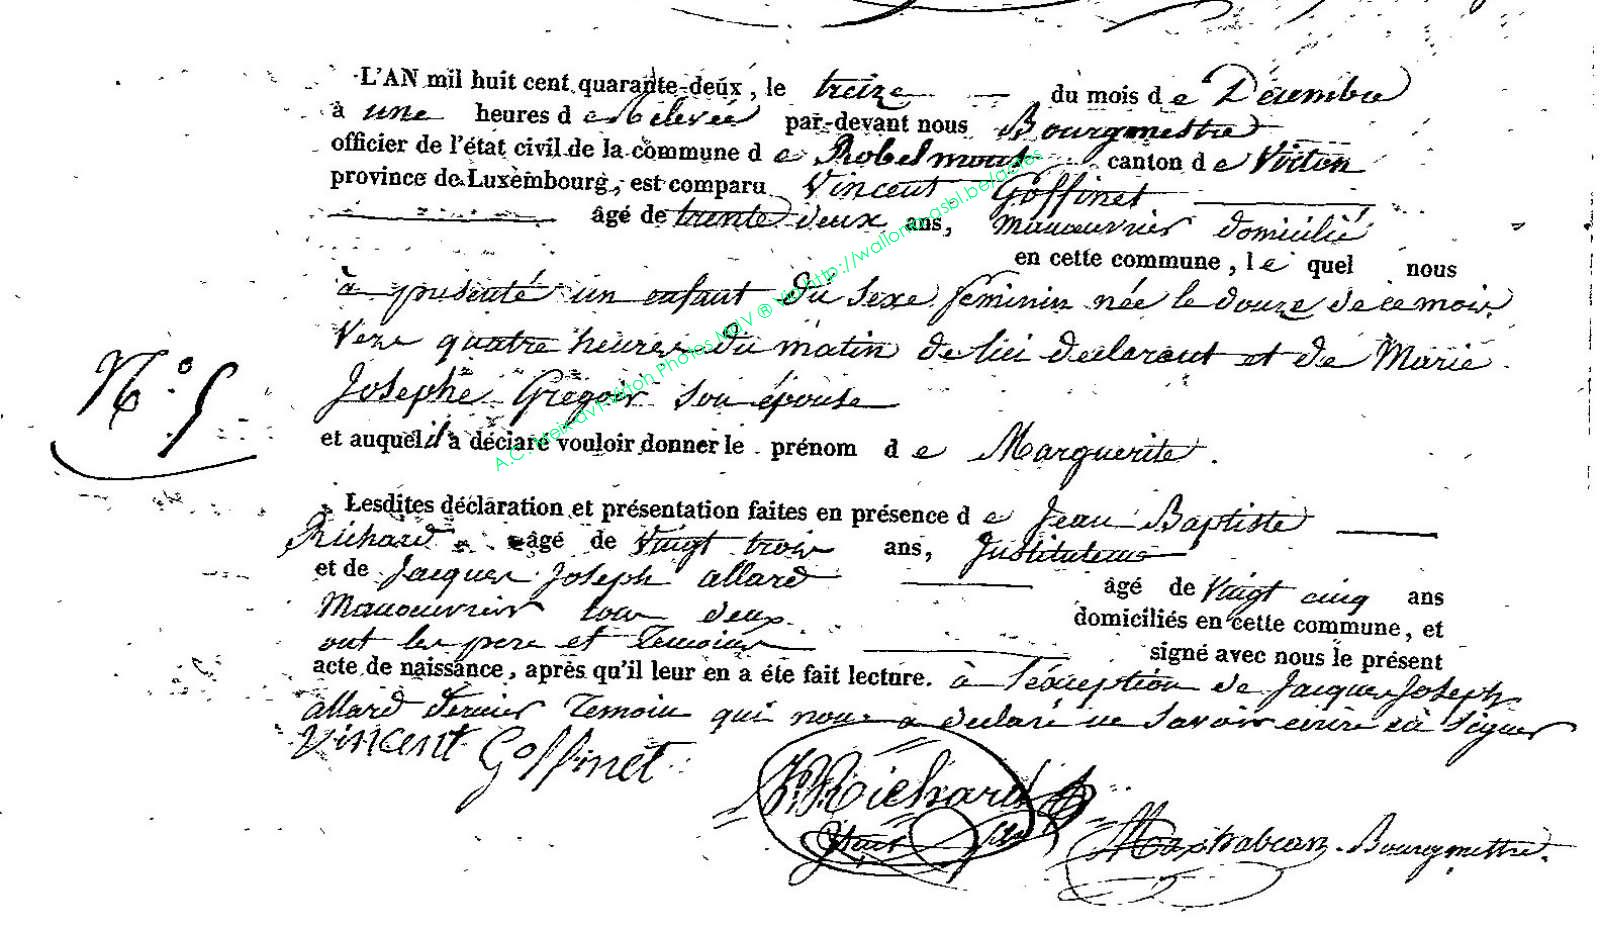 L'AN mil huit cent quarante-deux, le treize du mois de Décembre
à une heures de relevée par-devant nous Bourgmestre
officier de l'état civil de la commune de Robelmont canton de Virton
province de Luxembourg, est comparu Vincent Goffinet
âgé de trente deux ans, manœuvrier domicilié
en cette commune, le quel nous
à présenté un enfant du sexe feminin née le douze de ce mois
Vers quatre heures du matin de lui declarant et de Marie
Josephe Gregoir son épouse
N.º 5
et auquel il a déclaré vouloir donner le prénom de Marguerite.
Lesdites déclaration et présentation faites en présence de Jean Baptiste
Richard âgé de Vaigt trois ans, Instituteur
et de Jacques Joseph allard âgé de Vaigt cinq ans
Manoeuvrier tous deux domiciliés en cette commune, et
ont les pere et Temoins signé avec nous le présent
acte de naissance, après qu'il leur en a éte fait lecture. à l'éxception de Jacques Joseph
allard dernier Temoin qui nous a declaré ne savoir ecrire ni signer
Vincent Goffinet
Richard
Bourgmettre.
A.C. Meix-dvt-Virton Photos MdV ® Vic http://wallonia-asbl.be/actes